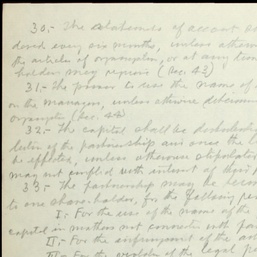 30.- The statements of account
dered every six months, unless otherwise
the articles of organization, or at any time
holder may require (Sec. 43)
31.- The power to use the name of
on the managers, unless otherwise determined
organization (Sec. 42)
32.- The capital shall be
of the partnership and once the
be effected, unless otherwise
may not conflict with interest of third
33.- The partnership may be
to one share-holder, for the following
I.- For the use of the name of the
capital in matters not connected with
II.- For the infringement of the
III.- For the of the legal